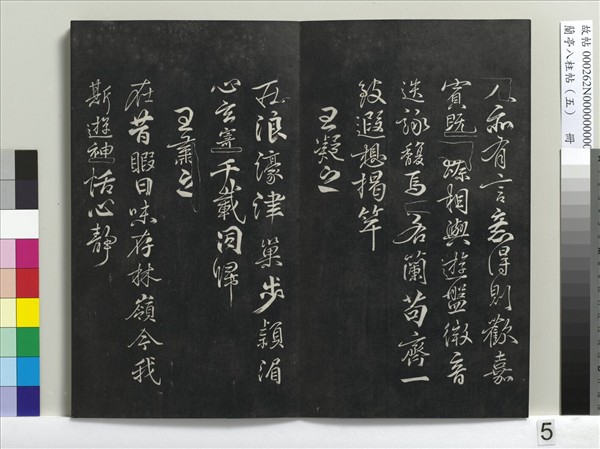 故帖 000262N00000000
蘭亭八柱帖（五） 冊
人亦有言意得則歡嘉
賓既臻相與遊盤微音
迭詠馥焉若蘭苟齊一
致遐想揭竿
王凝之
莊浪濠津巢步潁湄
心玄寄千載同歸
王肅之
在昔暇日味存林嶺今我
斯遊神恬心靜
5